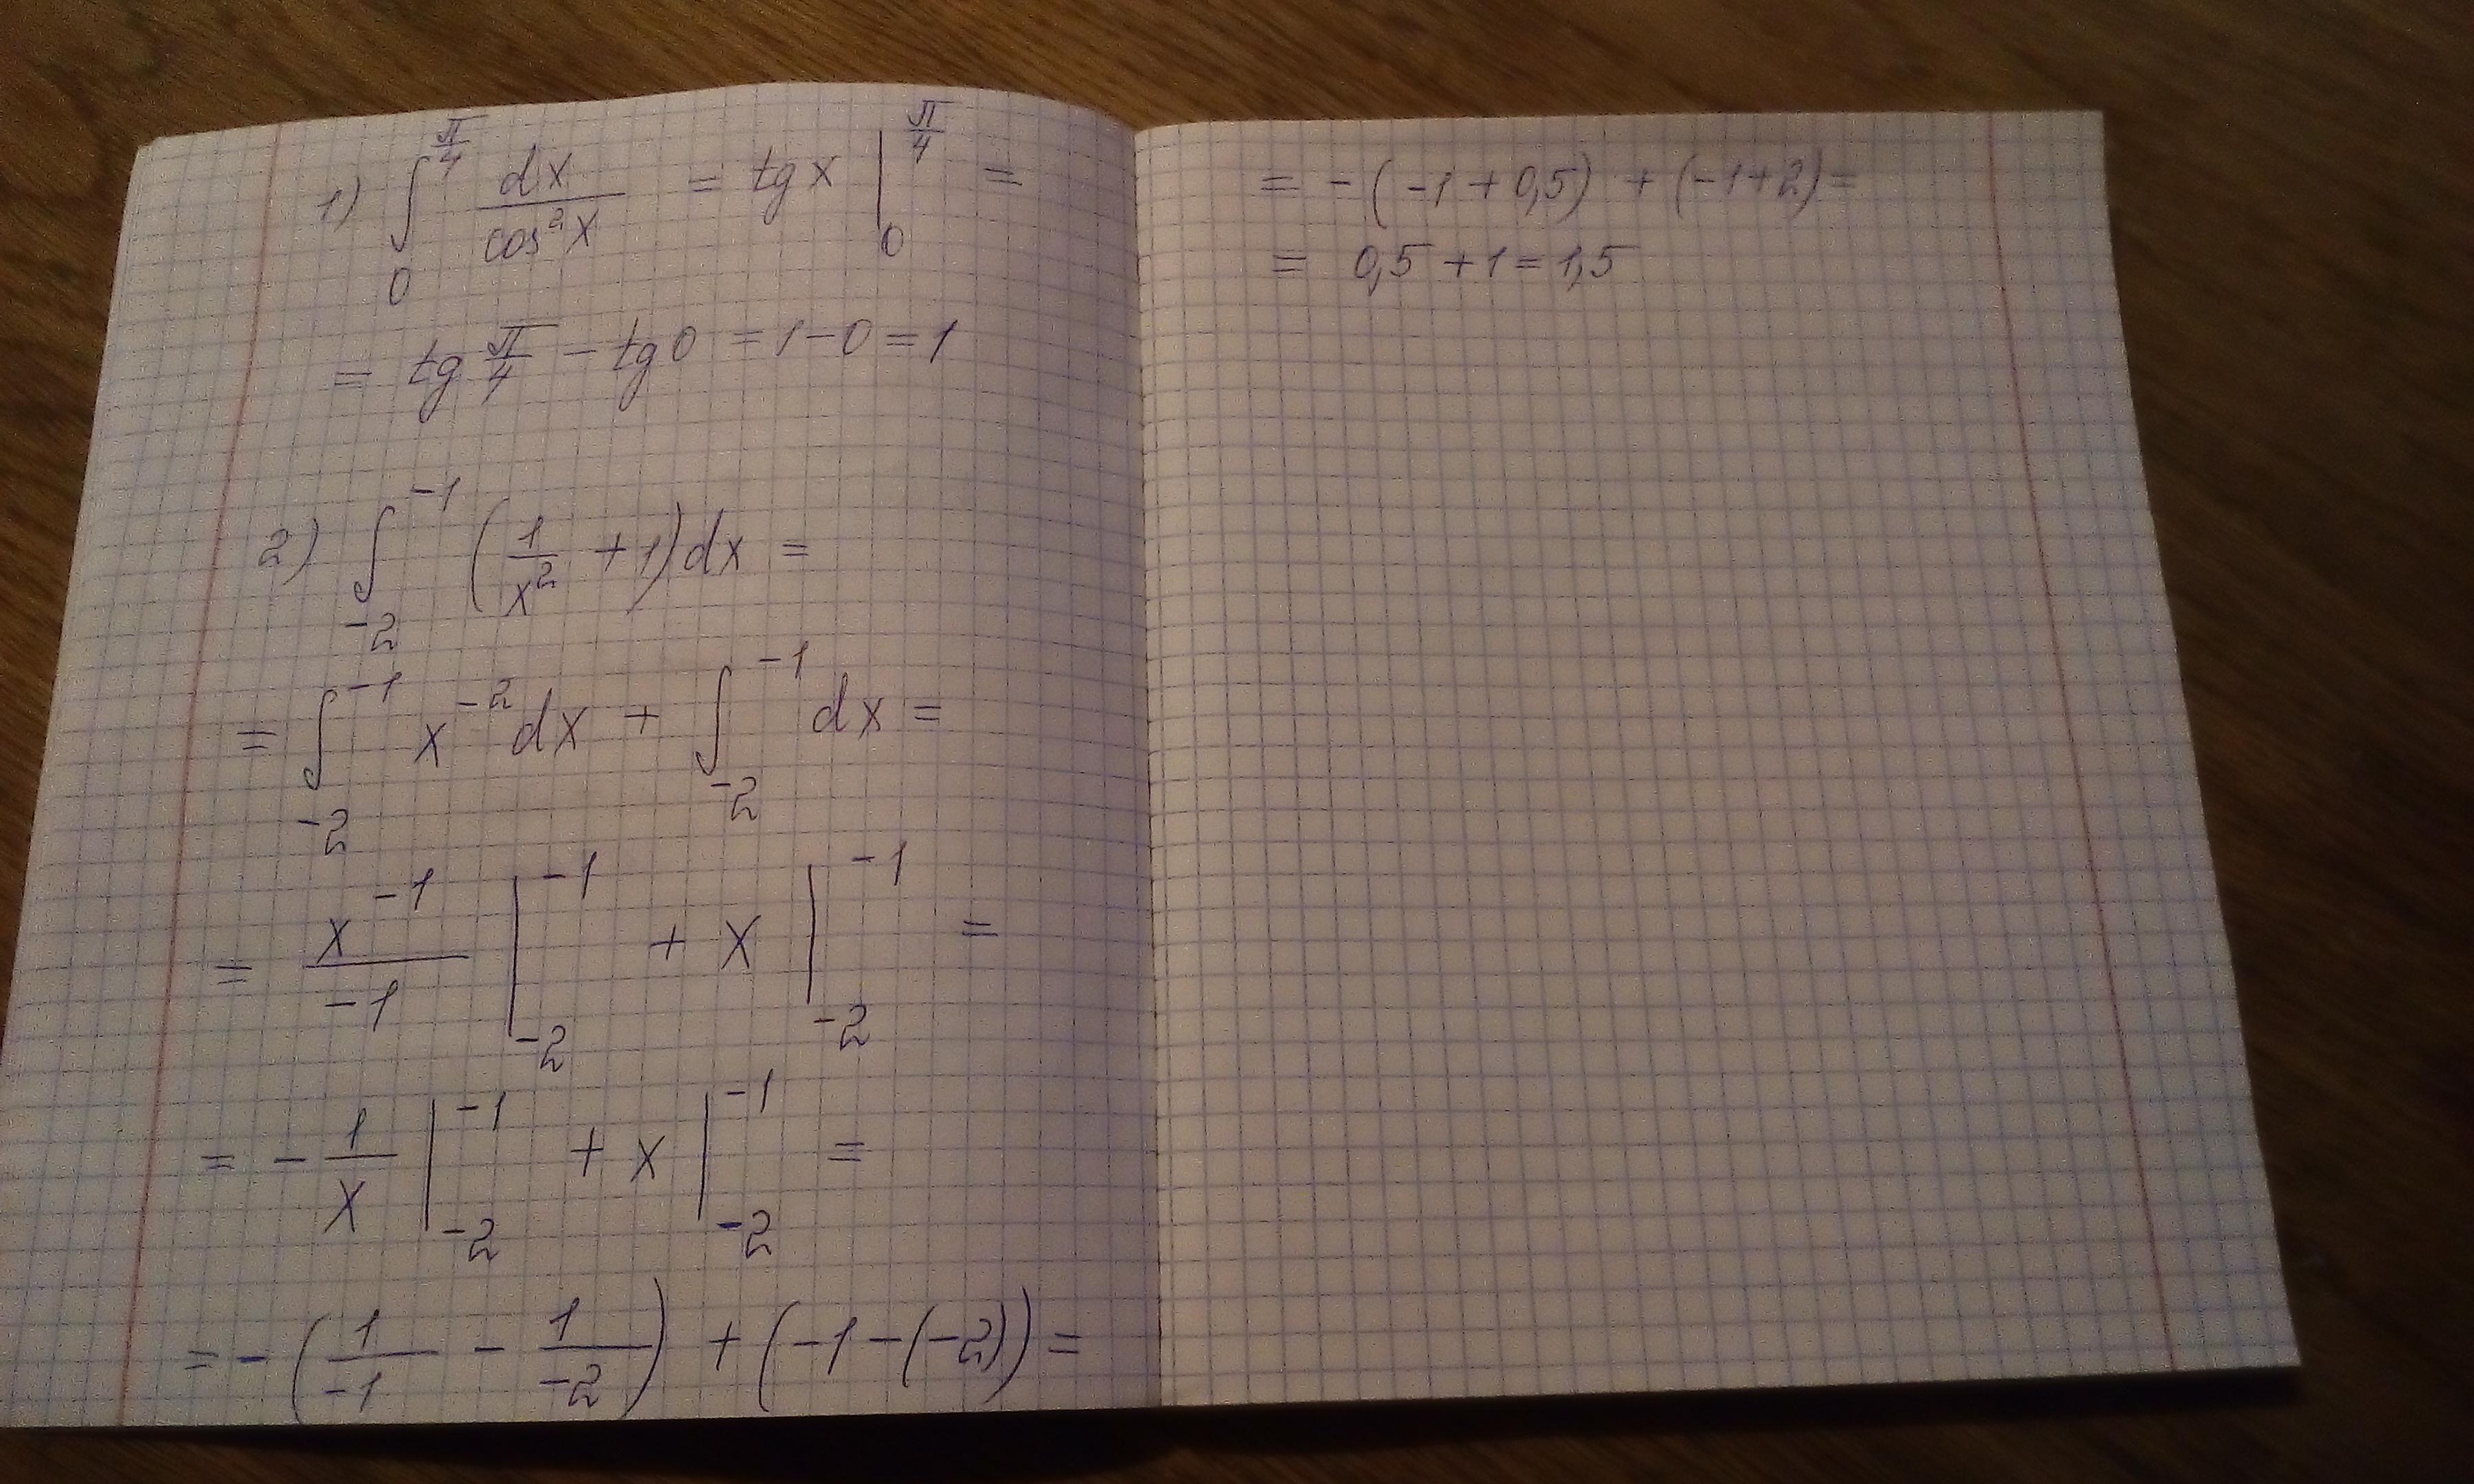 1) ∫₀^(π/4) dx/cos²x = tg x |₀^(π/4) =
= tg π/4 − tg 0 = 1 − 0 = 1
2) ∫₋₂^(−1) (1/x² + 1) dx =
= ∫₋₂^(−1) x⁻² dx + ∫₋₂^(−1) dx =
= x⁻¹/−1 |₋₂^(−1) + x |₋₂^(−1) =
= − 1/x |₋₂^(−1) + x |₋₂^(−1) =
= − (1/−1 − 1/−2) + (−1 − (−2)) =
= − (−1 + 0,5) + (−1 + 2) =
= 0,5 + 1 = 1,5